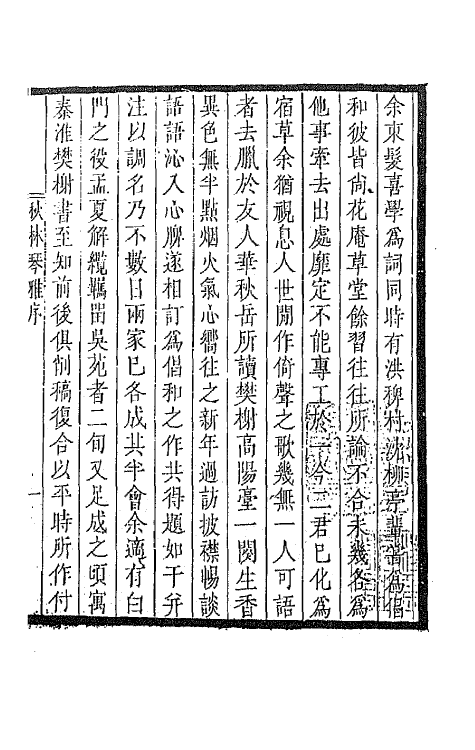 余束髮喜學為詞同時有洪稗村沈柳亭輩嘗為倡
和彼皆尚花庵草堂餘習往往所論不合未幾各為
他事牽去出處靡定不能專工於一今二君已化為
宿草余猶視息人世閒作倚聲之歌幾無一人可語
者去臘於友人華秋岳所讀樊榭高陽臺一闋生香
異色無半點烟火氣心嚮往之新年過訪披襟暢談
語語沁入心脾遂相訂為倡和之作共得題如干并
注以調名乃不數日兩家已各成其半會余適有白
門之役孟夏解纜羈畱吳苑者二旬又足成之頃寓
秦淮樊榭書至知前後俱削稿復合以平時所作付
秋林琴雅序
一